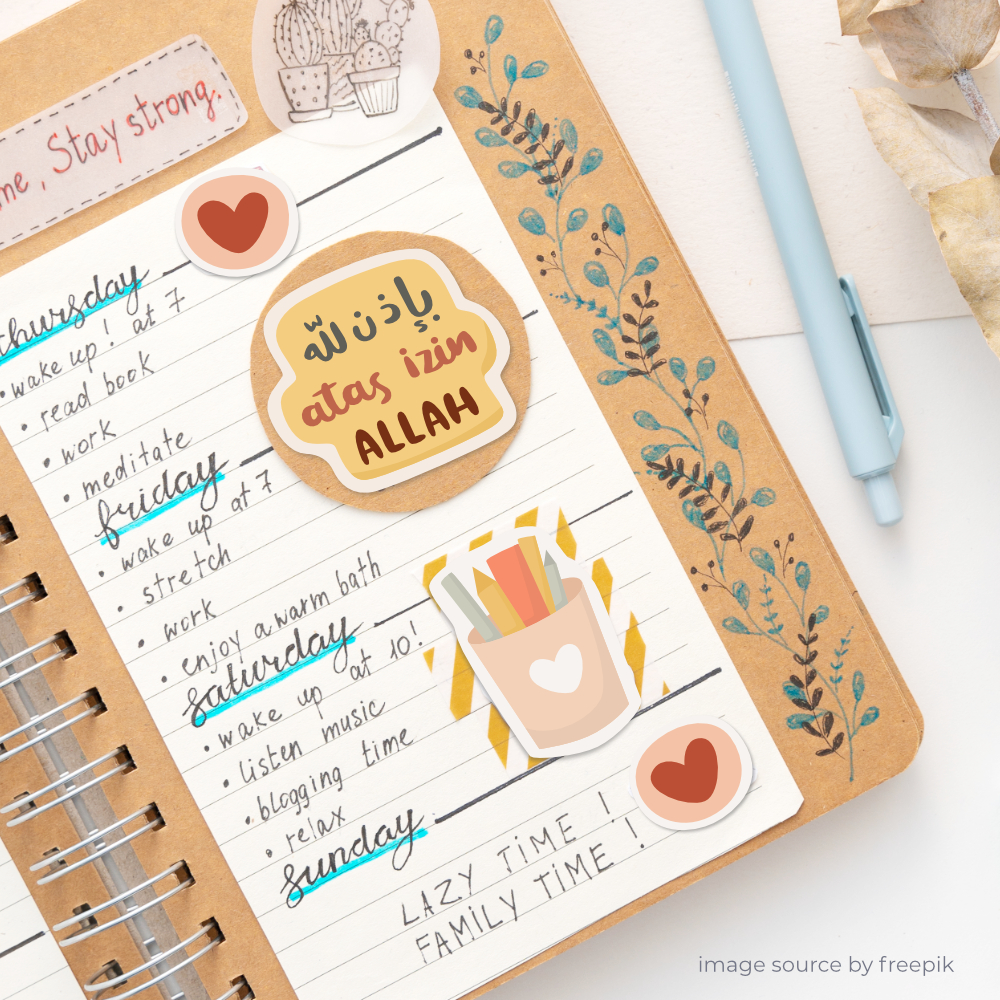 me, Stay strong.
thursday
• wake up! at 7
• read book
• work
• meditate
بإذن الله
atas izin
ALLAH
friday
• wake up at 7
• stretch
• work
• enjoy a warm bath
saturday
• wake up at 10!
• listen music
• blogging time
• relax
sunday
LAZY TIME !
FAMILY TIME !
image source by freepik